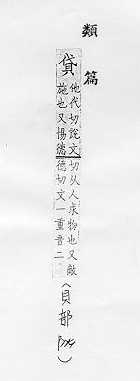 類篇
貸
他代切說文
施也又惕德
切从人求物也又敵
德切文一重音二
(貝部 )